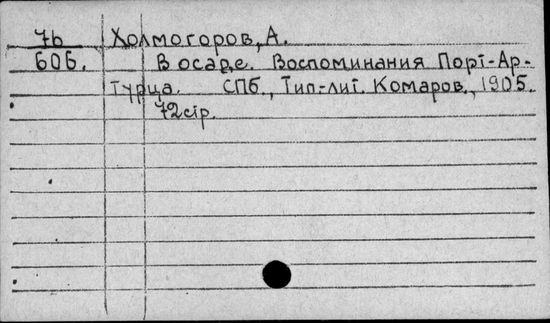 76 Холмогоров, А.
606. В осаде. Воспоминания Порт-Ар-
турца. СПб., Тип.-лит. Комаров., 1905.
72 стр.